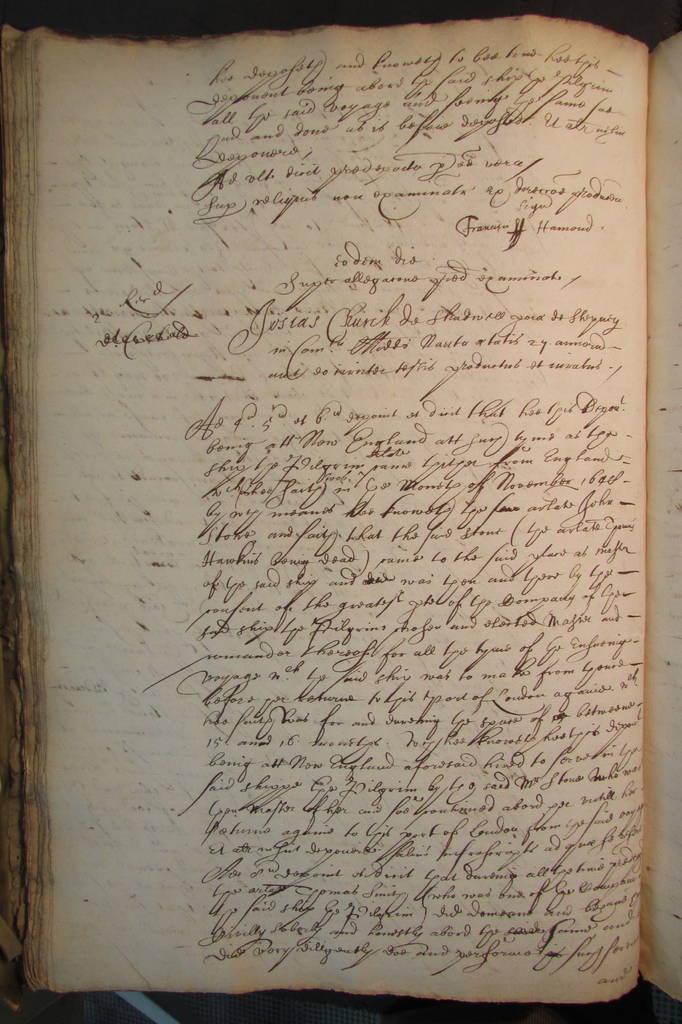 hee deposeth and knoweth to bee true hee this
deponent being abord the said shipp the Pilgrim
all the said voyage and seeing the same
and done as is before deposed Et aliter nescit
deponere /
Ad ult dicit predeposita per eum vera /
Sup reliquis non examinatr ex direccoe producen
Signu
Francis H Hamond .
Eodem die
Super allegacone pred examinats /
Josias Church de Shadwell poia de Stepney
in Com Midd Nauta etatis 27 annorum
aut eo circiter testis productus et iuratus /
Ad 4 5 et 6 deponit et dicit that hee this Depont
being att New England att such tyme as the
ship the Pilgrim arlate came thither from England
which hee saith was in the Moneth of November 1648
by which meanes hee knoweth the arlate John
Stone and saith that the said Stone (the arlate Thomas
Hawkins being dead) came to the said place as master
of the said ship and was then and there by the
consent of the greatest pte of the Company of the
said ship the Pilgrim chosen and elected Master and
comander thereof for all the tyme of the Ensueing
voyage wch the said ship was to make from thence
before her returne to this port of London againe wch
hee saith was for and dureing the space of betweene
15 and 16 moneths. Wch hee knoweth hee this deponent
being att New England aforesaid hired to serve in the
said shippe the Pilgrim by the said Mr Stone who was
then Master of her and soe continued abord her untill her
returne againe to this port of London from the said voyage
Et alr nescit deponere salvis
Ad 8 deponit et dicit that dureing all the time
the arlate Thomas Smith (who was one of the Company of
the said ship the Pilgrim) did demeane and behave
civilly soberly and honestly abord the same and
did very dilligently doe and performe such service
and